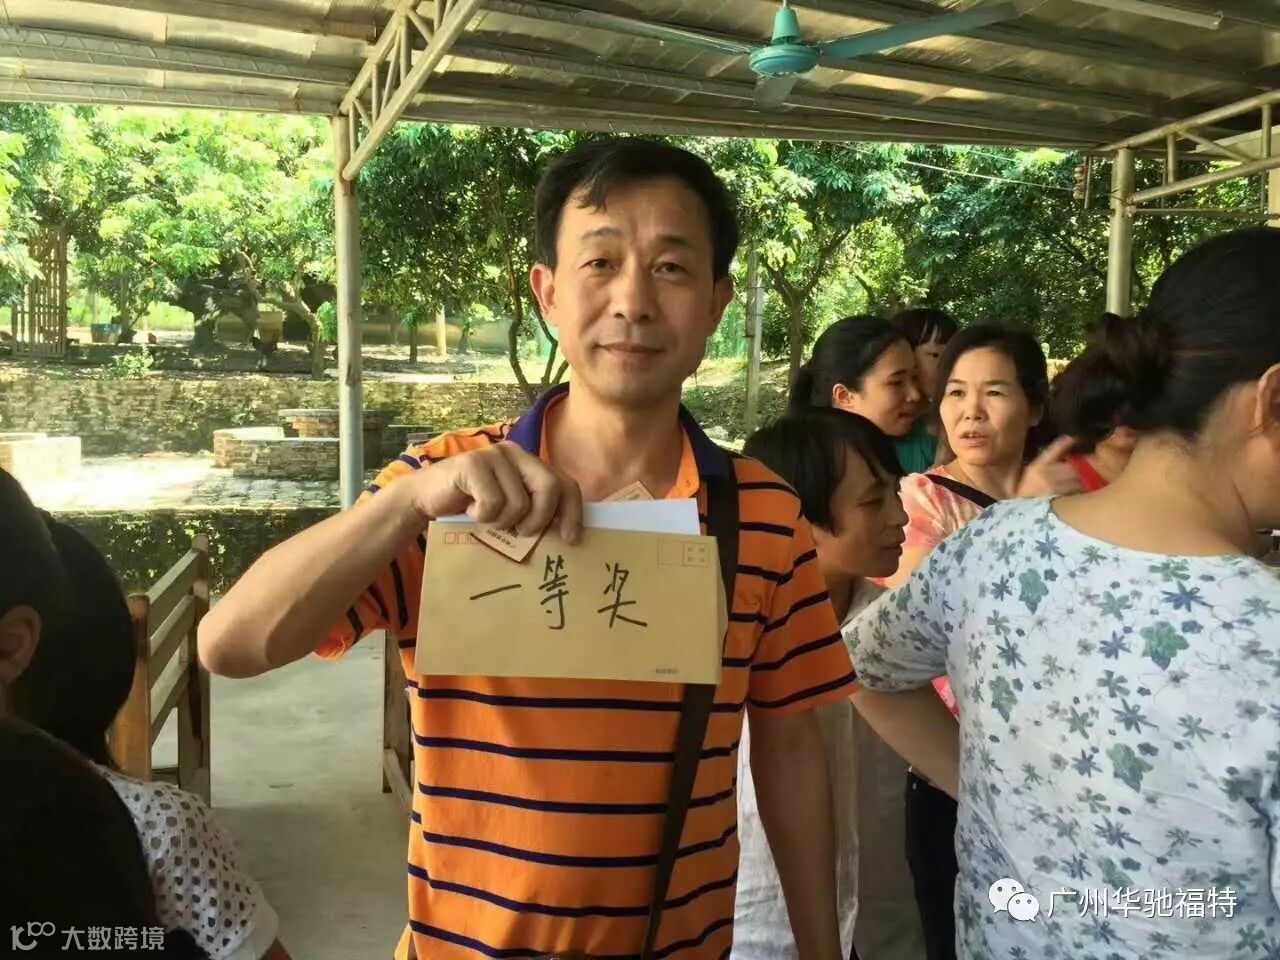 一等奖
广州华驰福特
大数跨境